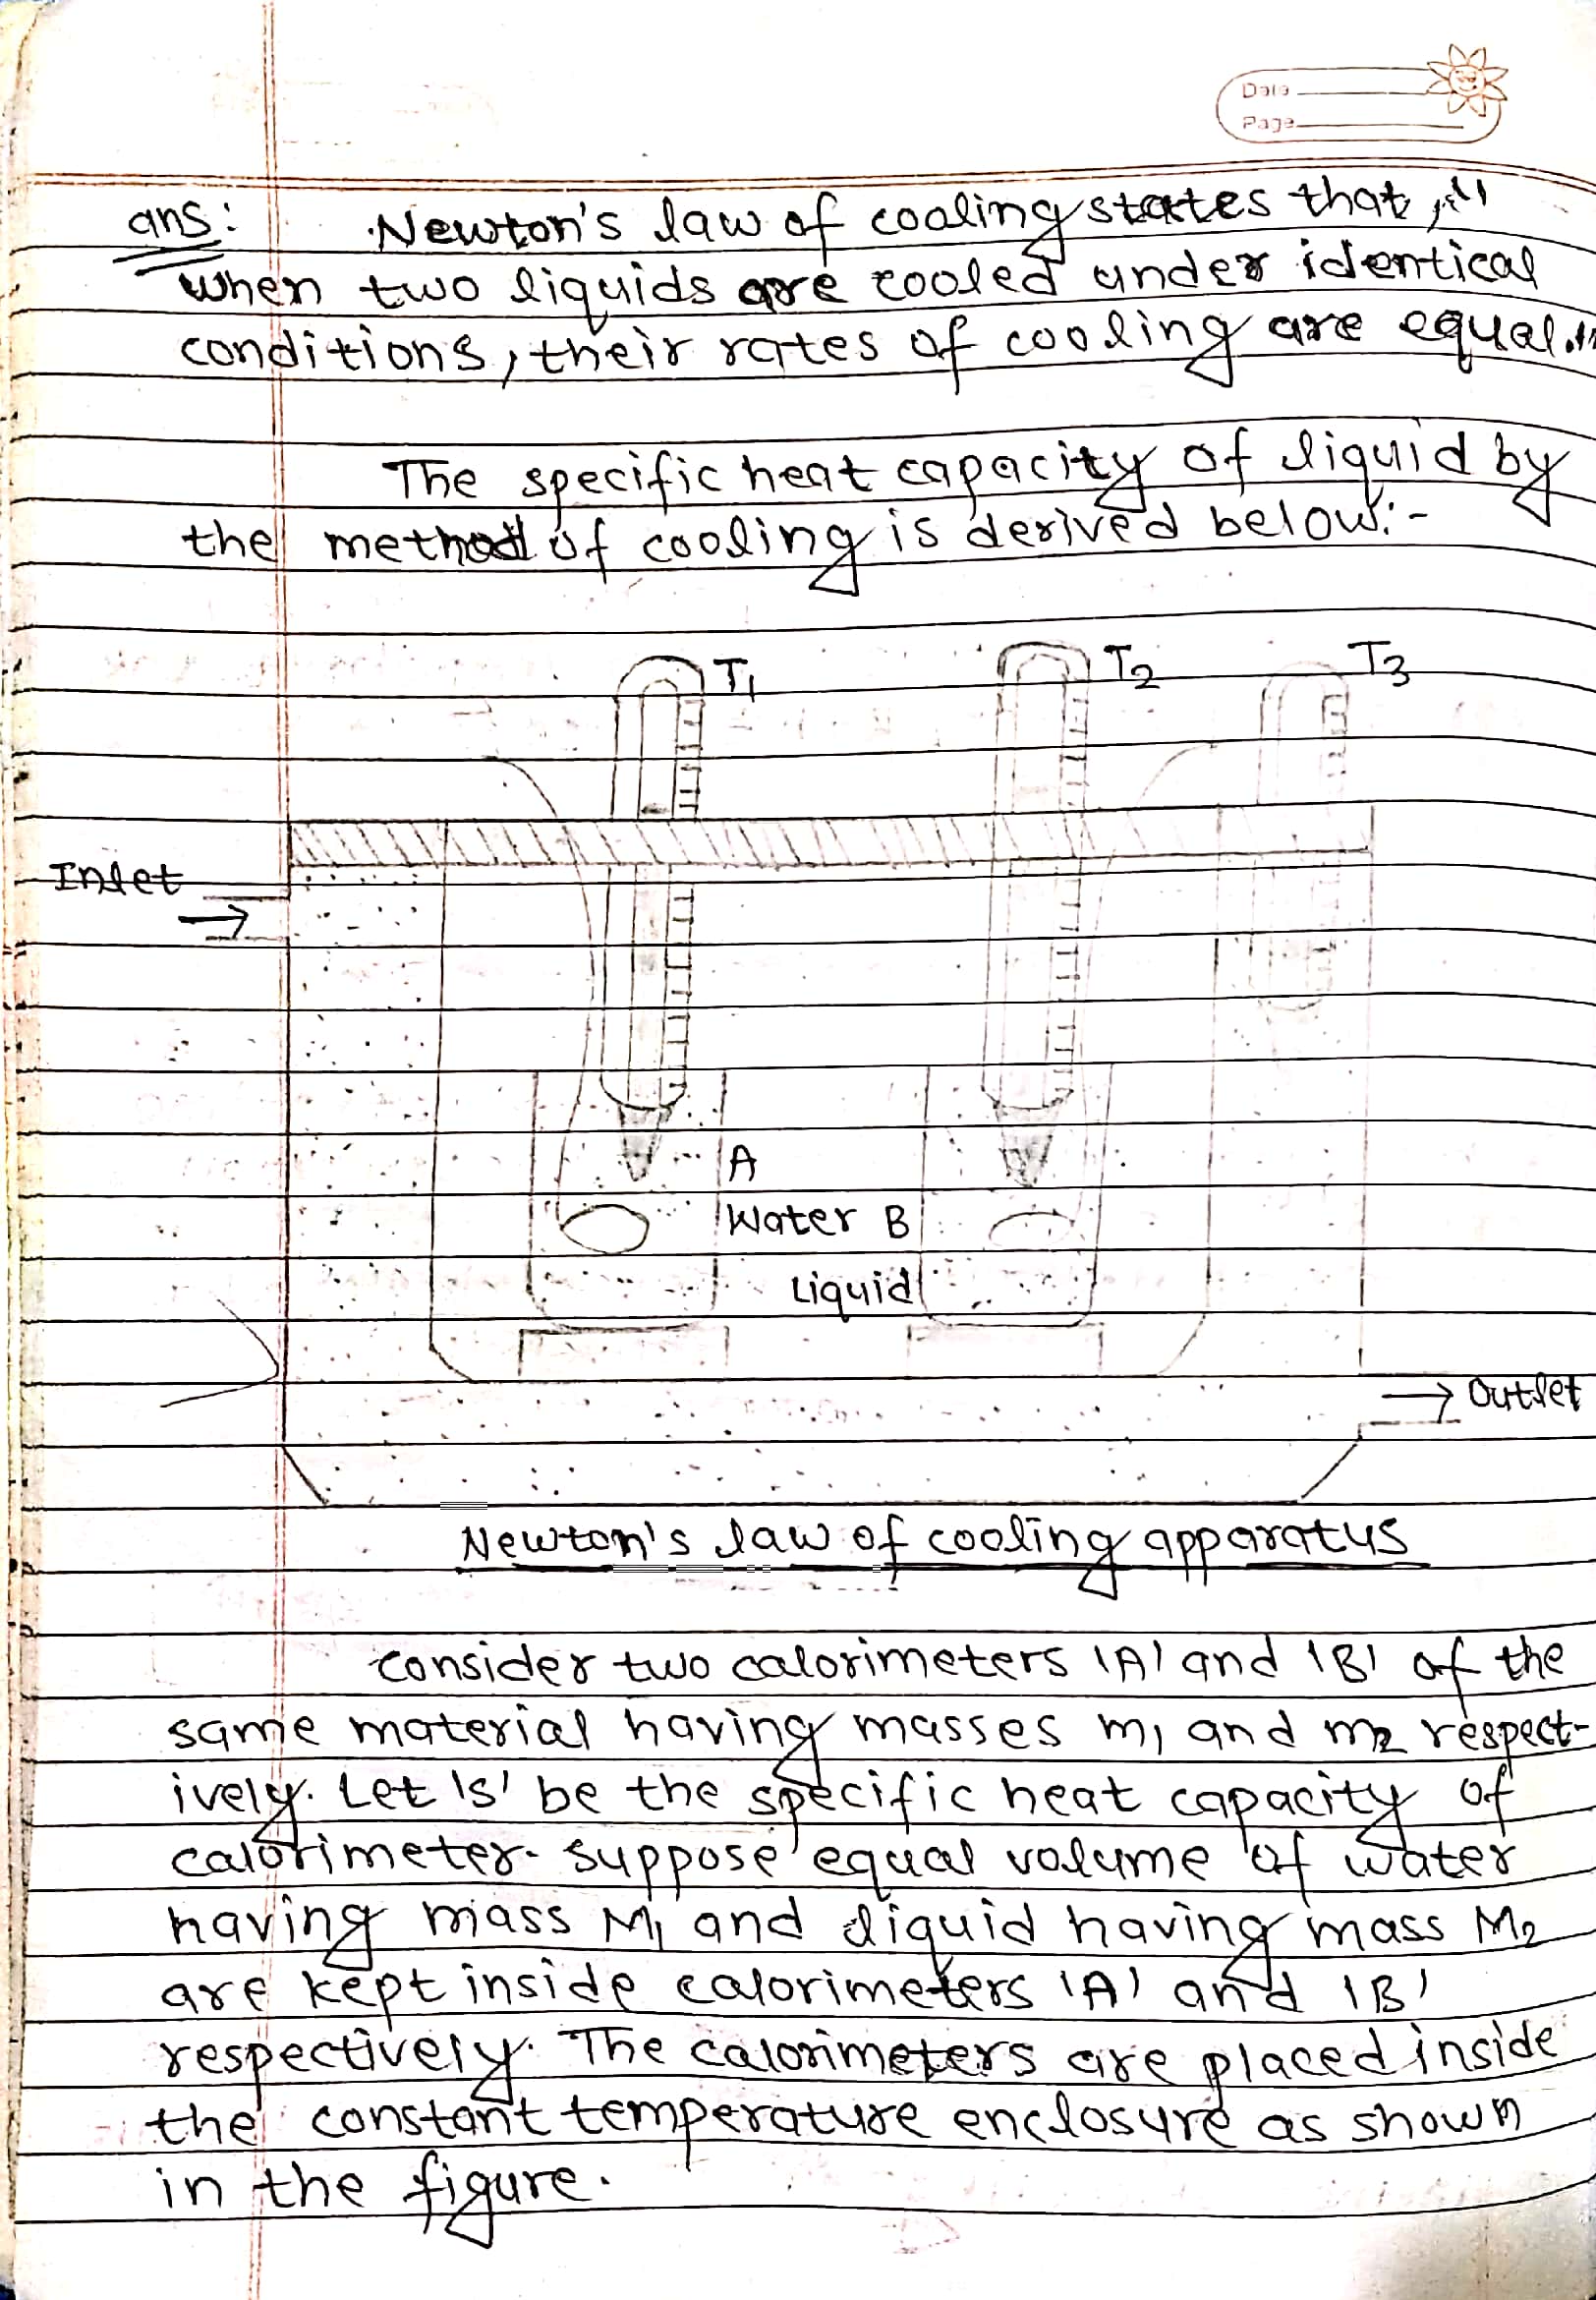 Date
Page
ans: Newton's law of cooling states that, "
when two liquids are cooled under identical
conditions, their rates of cooling are equal."
The specific heat capacity of liquid by
the method of cooling is derived below:-
T1 T2 T3
Inlet
A
Water B
Liquid
Outlet
Newton's law of cooling apparatus
consider two calorimeters 'A' and 'B' of the
same material having masses m1 and m2 respect-
ively. Let 's' be the specific heat capacity of
calorimeter. suppose equal volume of water
having mass M1 and liquid having mass M2
are kept inside calorimeters 'A' and 'B'
respectively. The calorimeters are placed inside
the constant temperature enclosure as shown
in the figure.